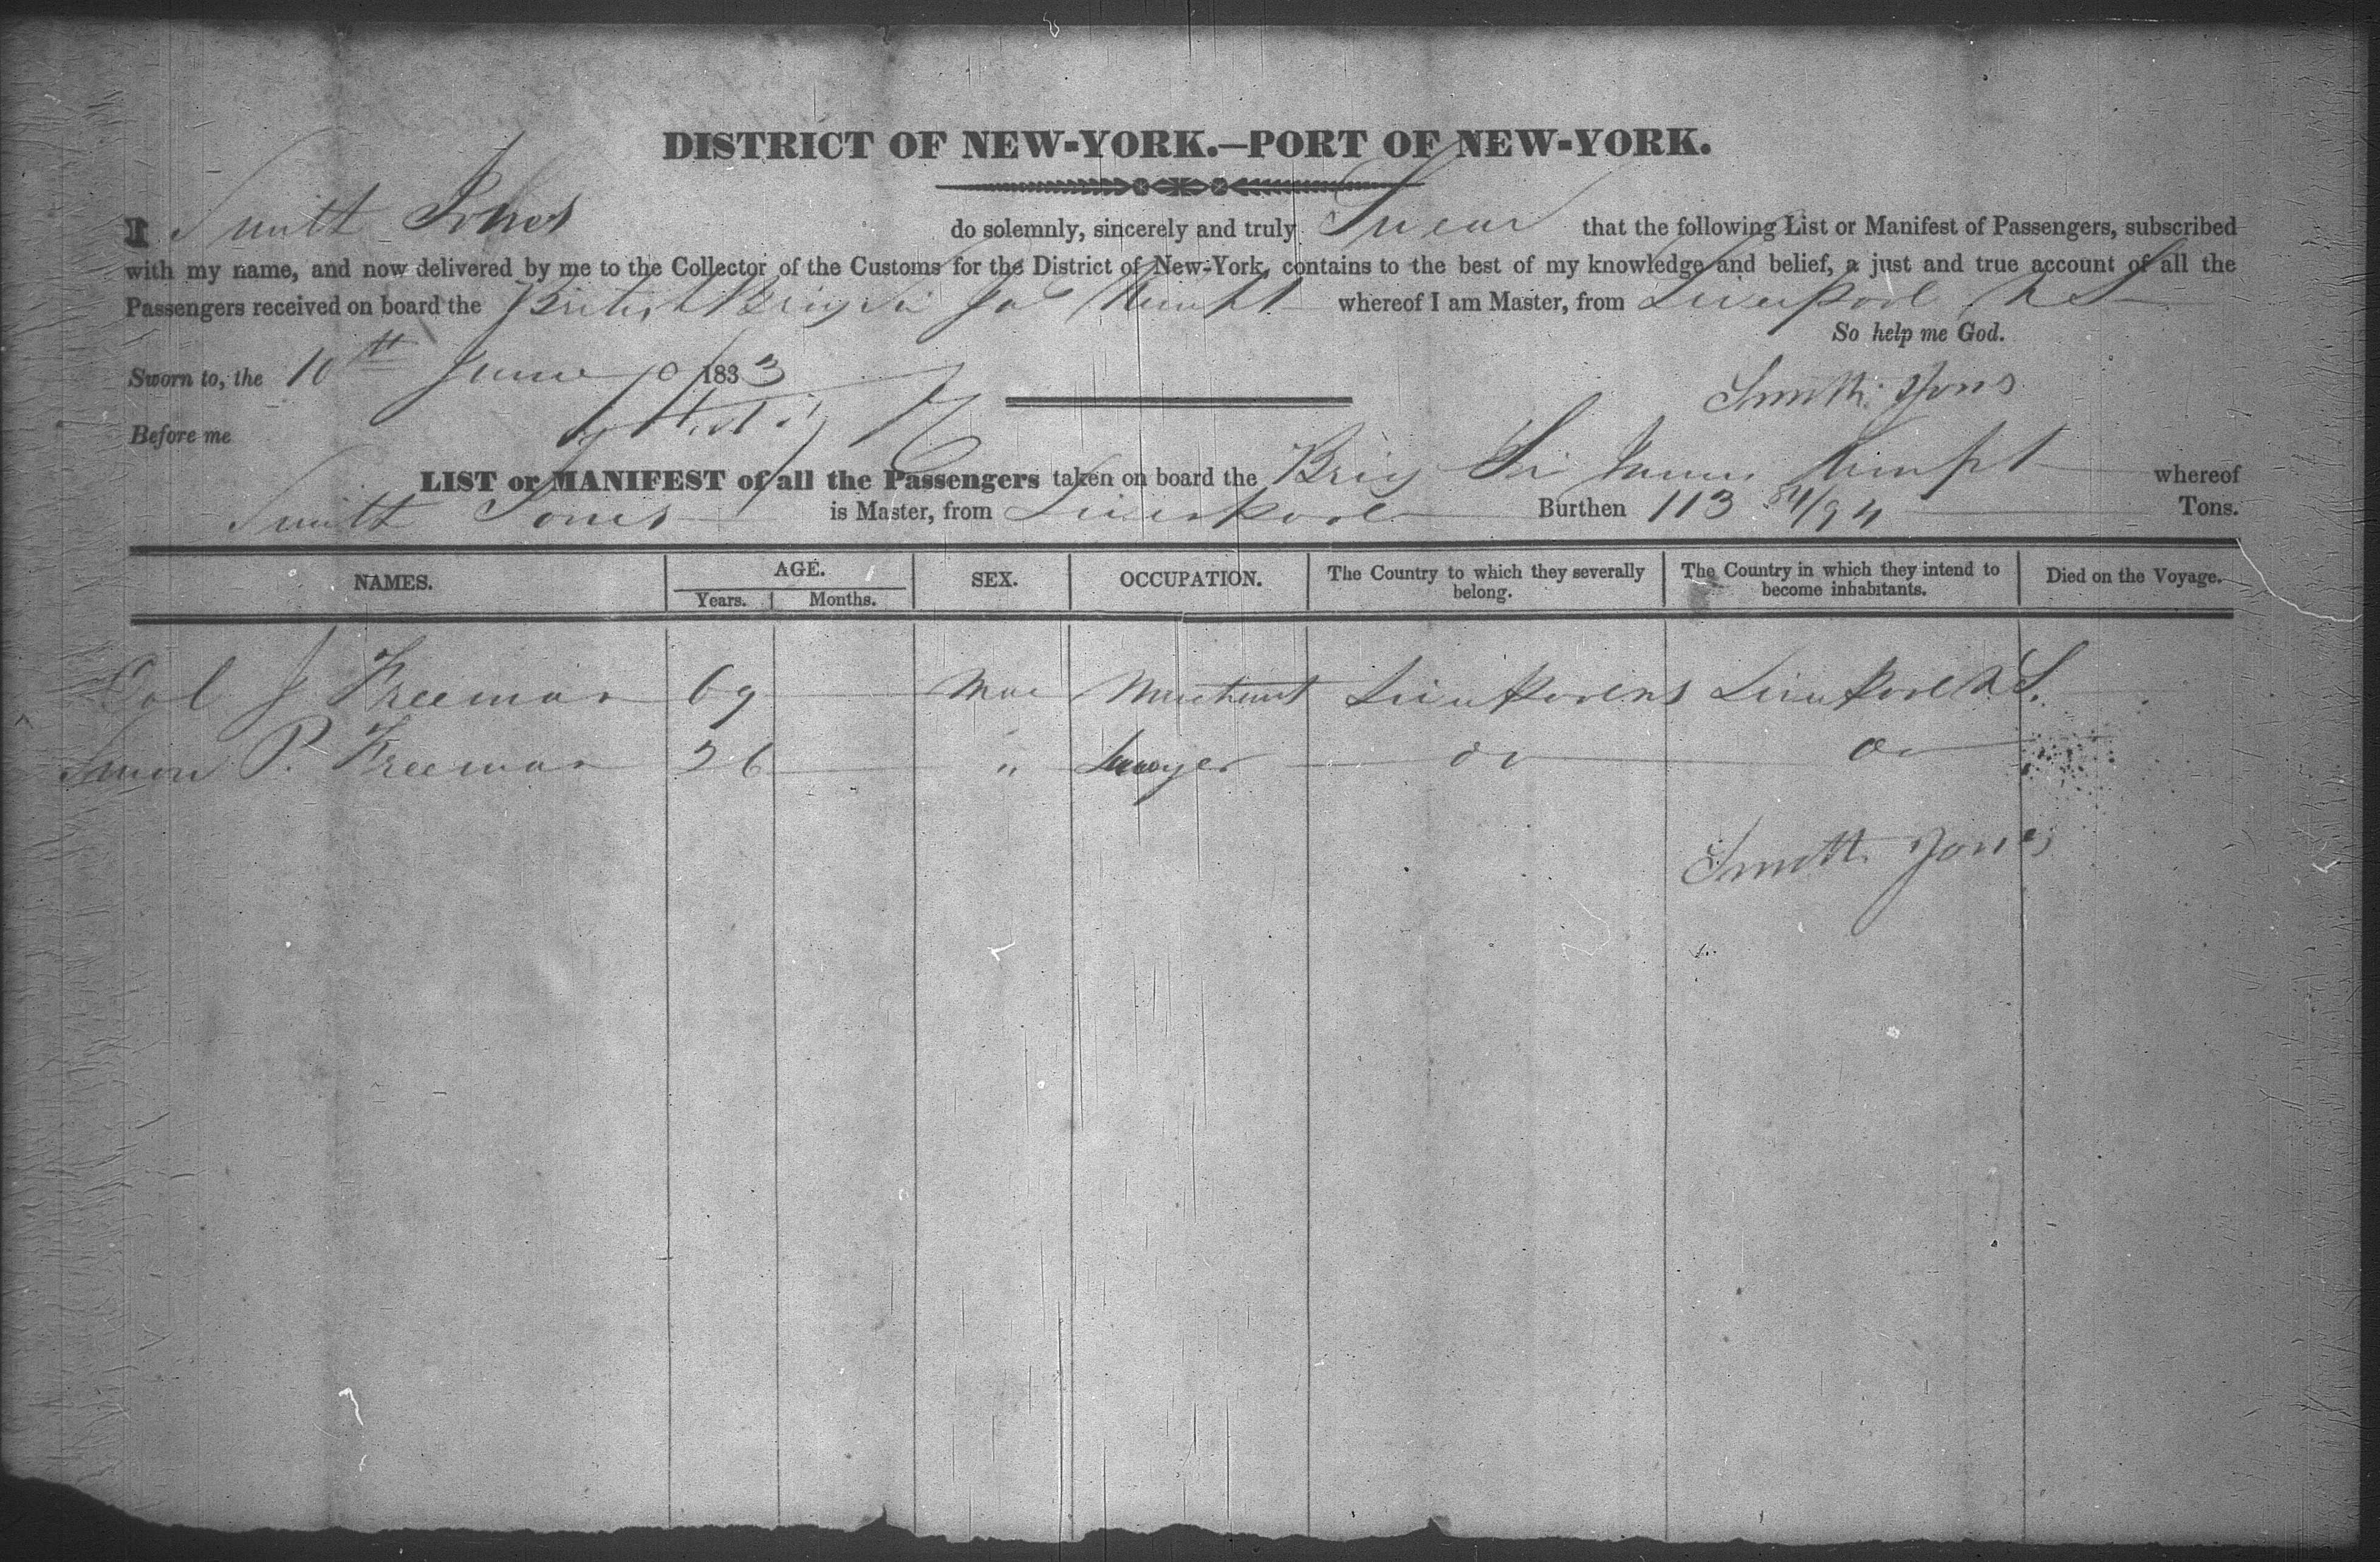 DISTRICT OF NEW-YORK.—PORT OF NEW-YORK.
I Smith Jones do solemnly, sincerely and truly Swear that the following List or Manifest of Passengers, subscribed
with my name, and now delivered by me to the Collector of the Customs for the District of New-York, contains to the best of my knowledge and belief, a just and true account of all the
Passengers received on board the British Brig Sir Jas Kempt whereof I am Master, from Liverpool N S
So help me God.
Sworn to, the 10th June 1833
Smith Jones
Before me
LIST or MANIFEST of all the Passengers taken on board the Brig Sir James Kempt whereof
Smith Jones is Master, from Liverpool Burthen 113 84/94 Tons.
NAMES. AGE. SEX. OCCUPATION. The Country to which they severally belong. The Country in which they intend to become inhabitants. Died on the Voyage.
Years. Months.
Col J Freeman 69 Mae Merchant Liverpool NS Liverpool N S.
P. Freeman 26 " Lawyer do do
Smith Jones